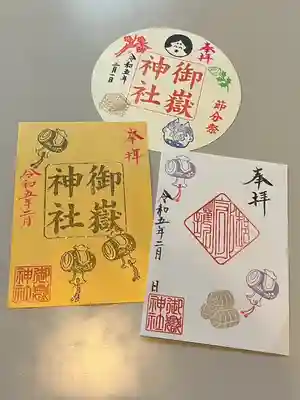 奉拝
御嶽
神社
節分祭
令和五年
二月一日
奉拝
御嶽
神社
令和五年二月
御嶽
神社
奉拝
令和五年二月
日
御嶽
神社